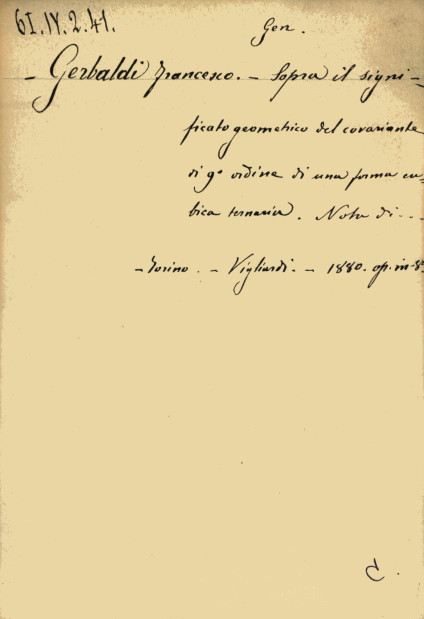 61.IV.2.41.
Gen.
- Gerbaldi Francesco. - Sopra il signi-
ficato geometrico del covariante
di 9° ordine di una forma cu-
bica ternaria. Nota di...
- Torino. - Vigliardi. - 1880. op. in-8°
C.